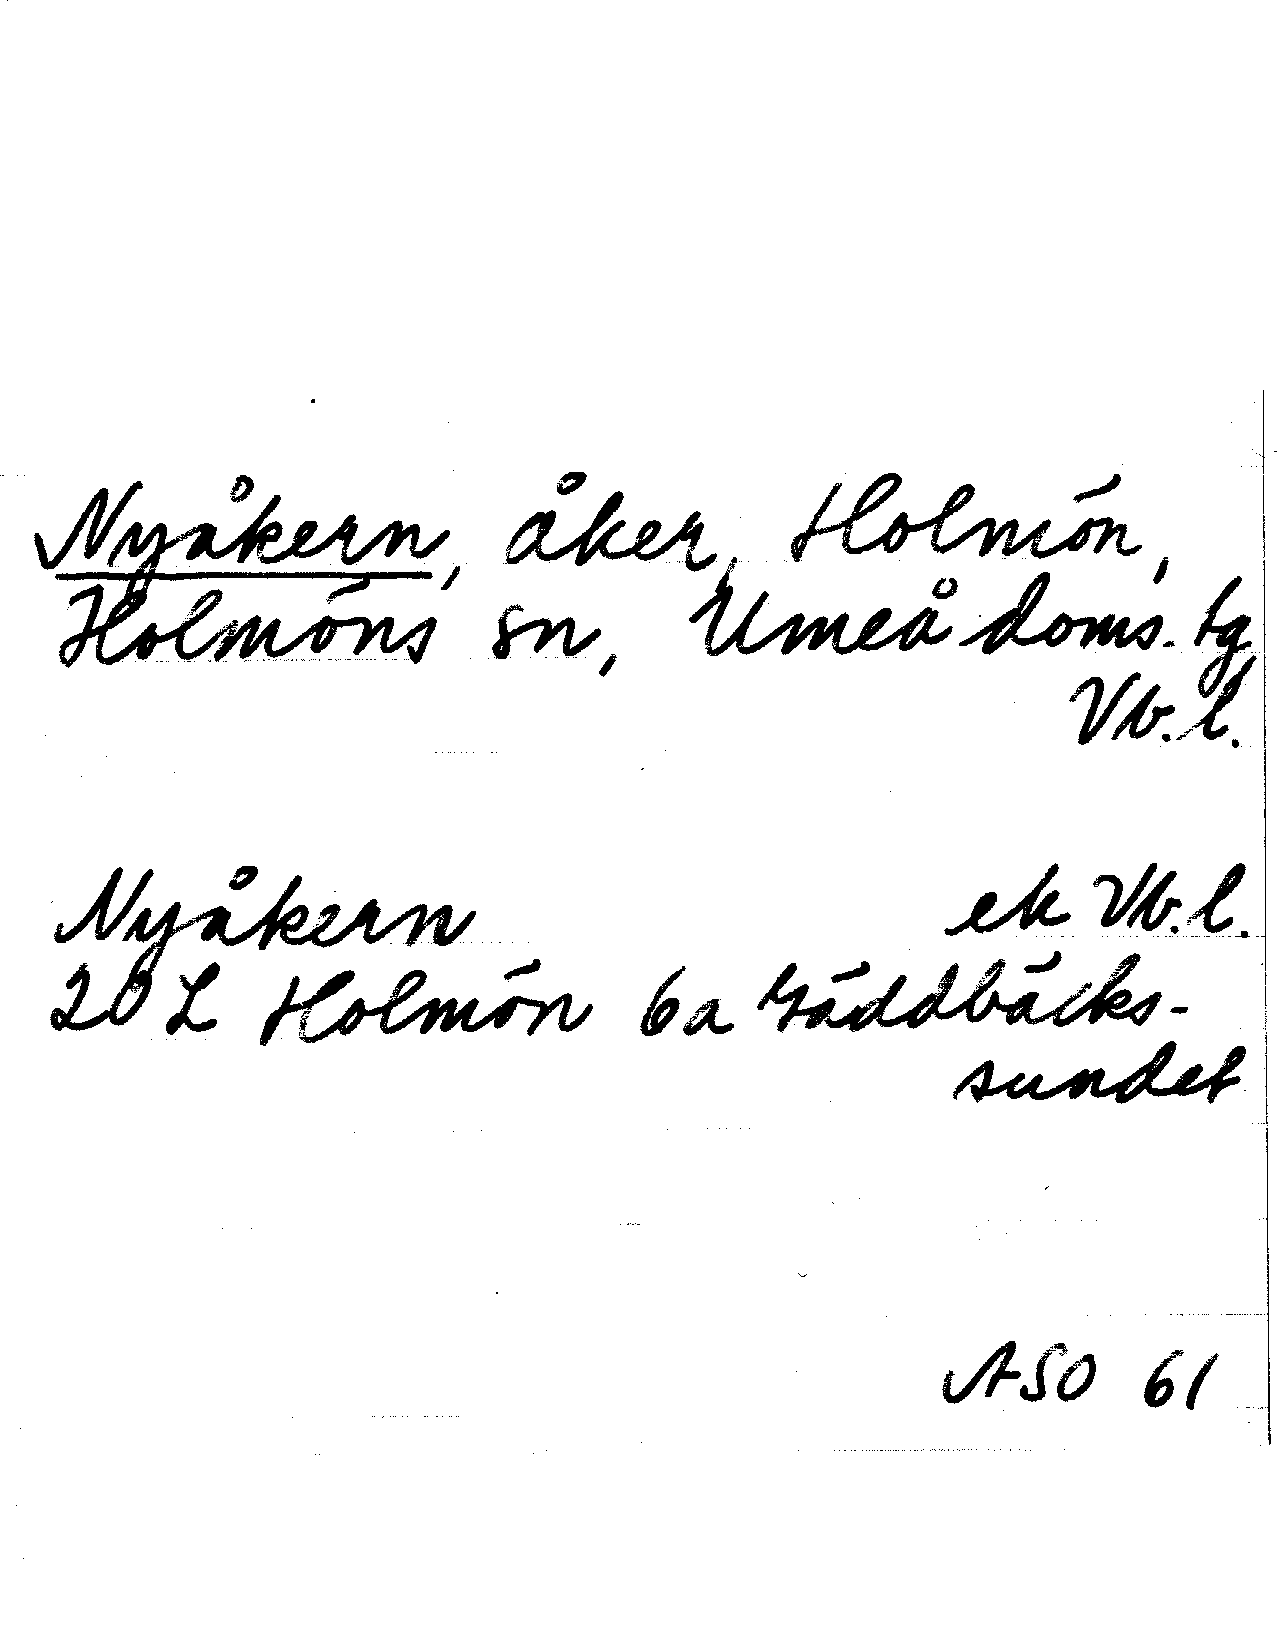 Nyåkern, åker, Holmön,
Holmöns sn, Umeå doms. tg
Vb. l.
Nyåkern ek Vb. l.
20 L Holmön 6a Gäddbäcks-
sundet
ASO 61